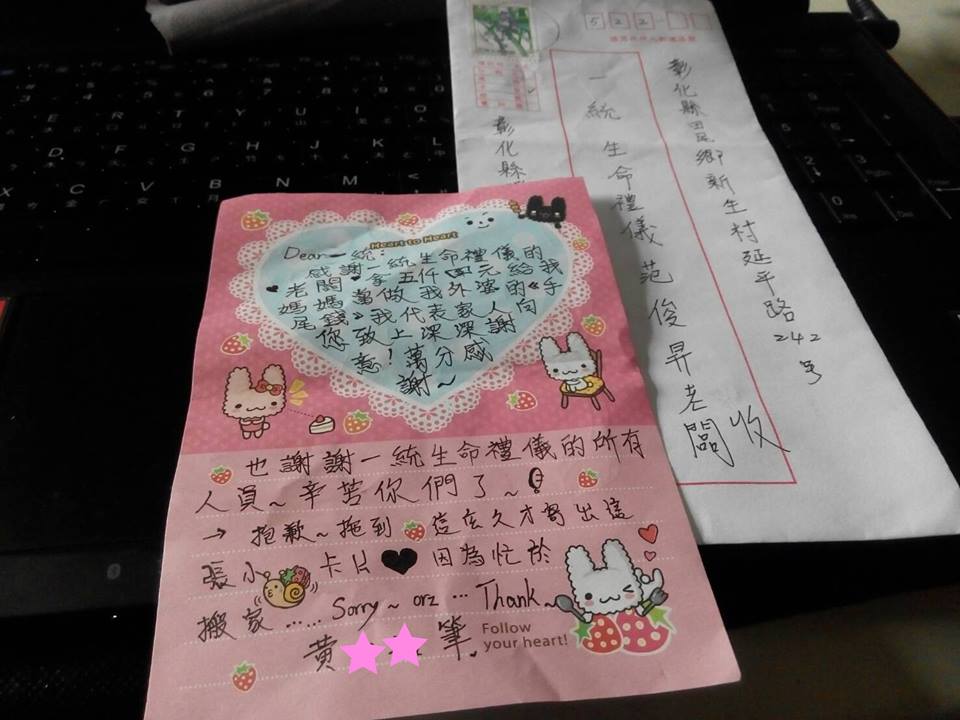 Heart to Heart
Dear 一統：
感謝一統生命禮儀的
老闆，拿五仟四元給我
媽媽當做我外婆的《手
尾錢》我代表家人向
您致上深深謝
意！萬分感
謝~
也謝謝一統生命禮儀的所有
人員~辛苦你們了~
→ 抱歉~拖到這広久才寄出這
張小卡片♥因為忙於
搬家……Sorry~orz…Thank~
黃 筆
Follow
your heart!
522
彰化縣田尾鄉新生村延平路242号
一統生命禮儀 范俊昇老闆 收
彰化縣
Q W E R T Y U I O
D F G H J K L
X C V B N M